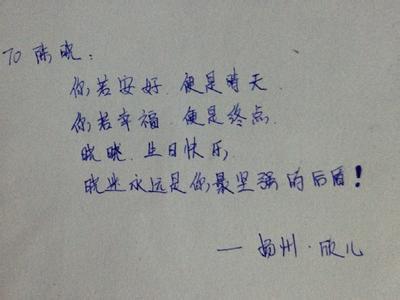 TO 陈晓:
你若安好,便是晴天.
你若幸福,便是终点.
晓晓.生日快乐
晓迷永远是你最坚强的后盾!
— 扬州·欣儿